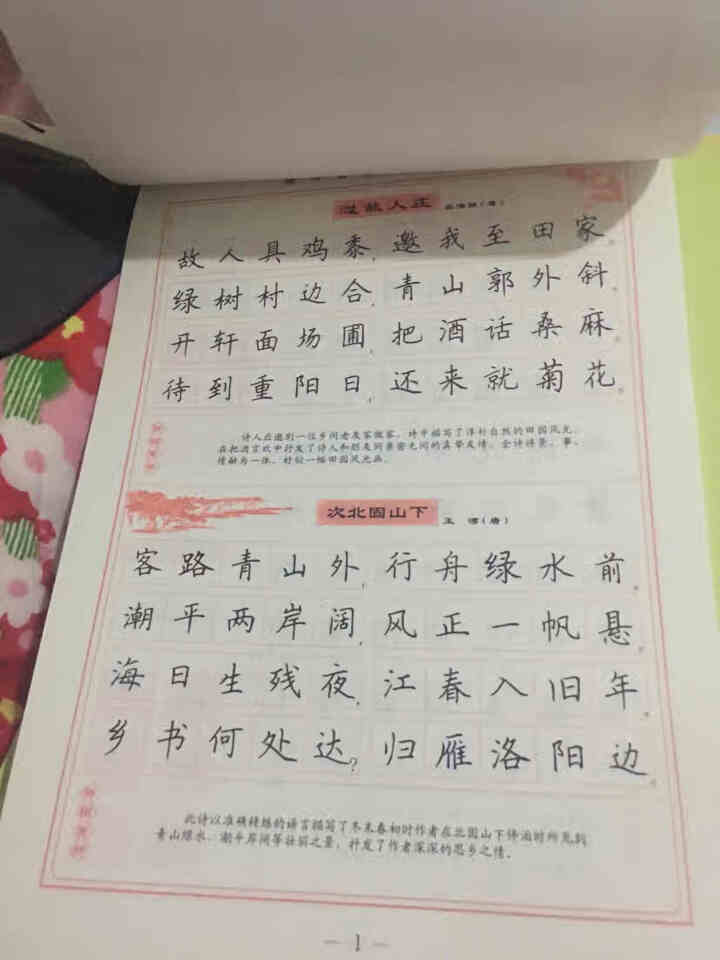 过故人庄 孟浩然(唐)
故人具鸡黍,邀我至田家。
绿树村边合,青山郭外斜。
开轩面场圃,把酒话桑麻。
待到重阳日,还来就菊花。
诗人应邀到一位乡间老友家做客,诗中描写了淳朴自然的田园风光,
在把酒言欢中抒发了诗人和朋友间亲密无间的真挚友情。全诗将景、事、
情融为一体,好似一幅田园风光画。
次北固山下 王湾(唐)
客路青山外,行舟绿水前。
潮平两岸阔,风正一帆悬。
海日生残夜,江春入旧年。
乡书何处达?归雁洛阳边。
此诗以准确精炼的语言描写了冬末春初时作者在北固山下停泊时所见到
青山绿水、潮平岸阔等壮丽之景,抒发了作者深深的思乡之情。
— 1 —